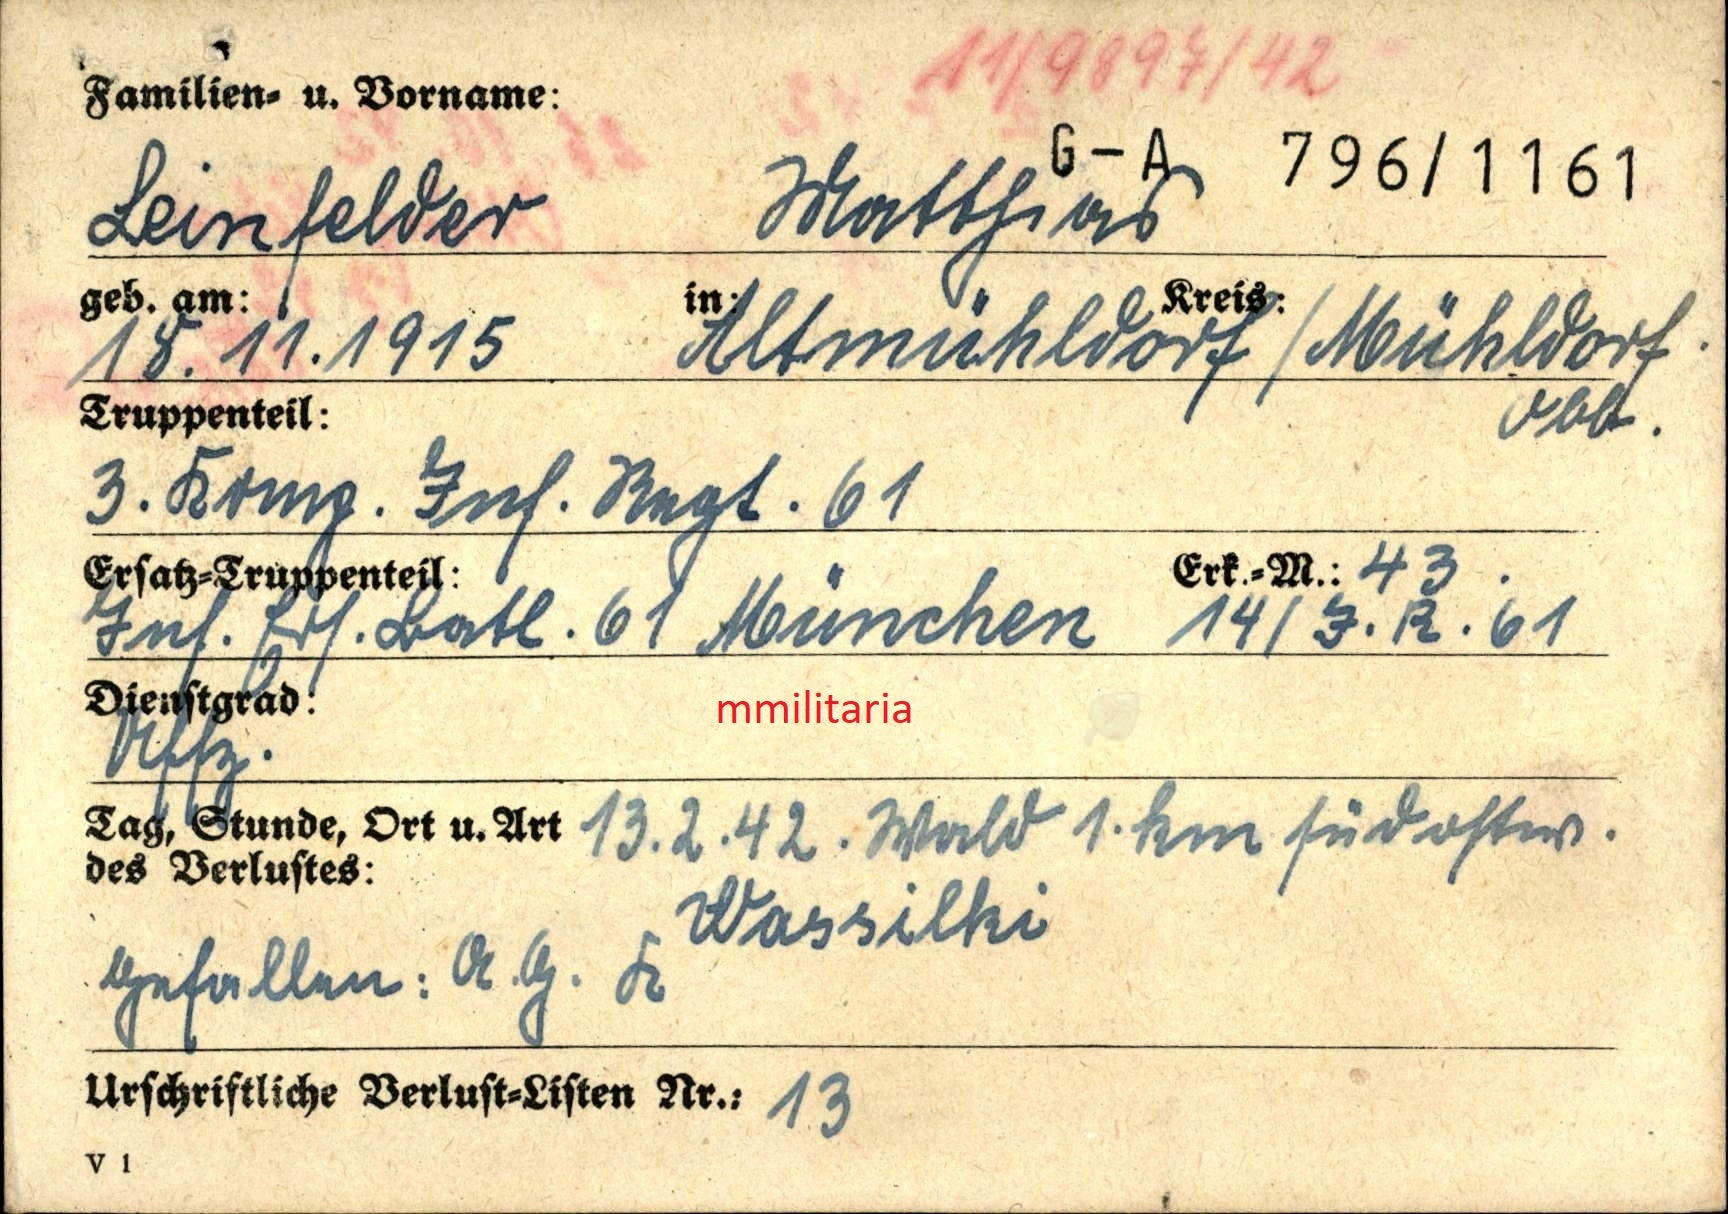 11/9897/42
Familien- u. Vorname:
G-A 796/1161
Leinfelder Matthias
geb. am: in: Kreis:
18. 11. 1915 Altmühldorf / Mühldorf.
Obb.
Truppenteil:
3. Komp. Inf. Regt. 61
Ersatz-Truppenteil: Erk.-M.: 43.
Inf. Ers. Batl. 61 München 14/ I. R. 61
Dienstgrad:
mmilitaria
Uffz.
Tag, Stunde, Ort u. Art 13.2.42. Wald 1. km südostw.
des Verlustes:
Wassilki
gefallen: A.G. K
Urschriftliche Verlust-Listen Nr.: 13
V 1